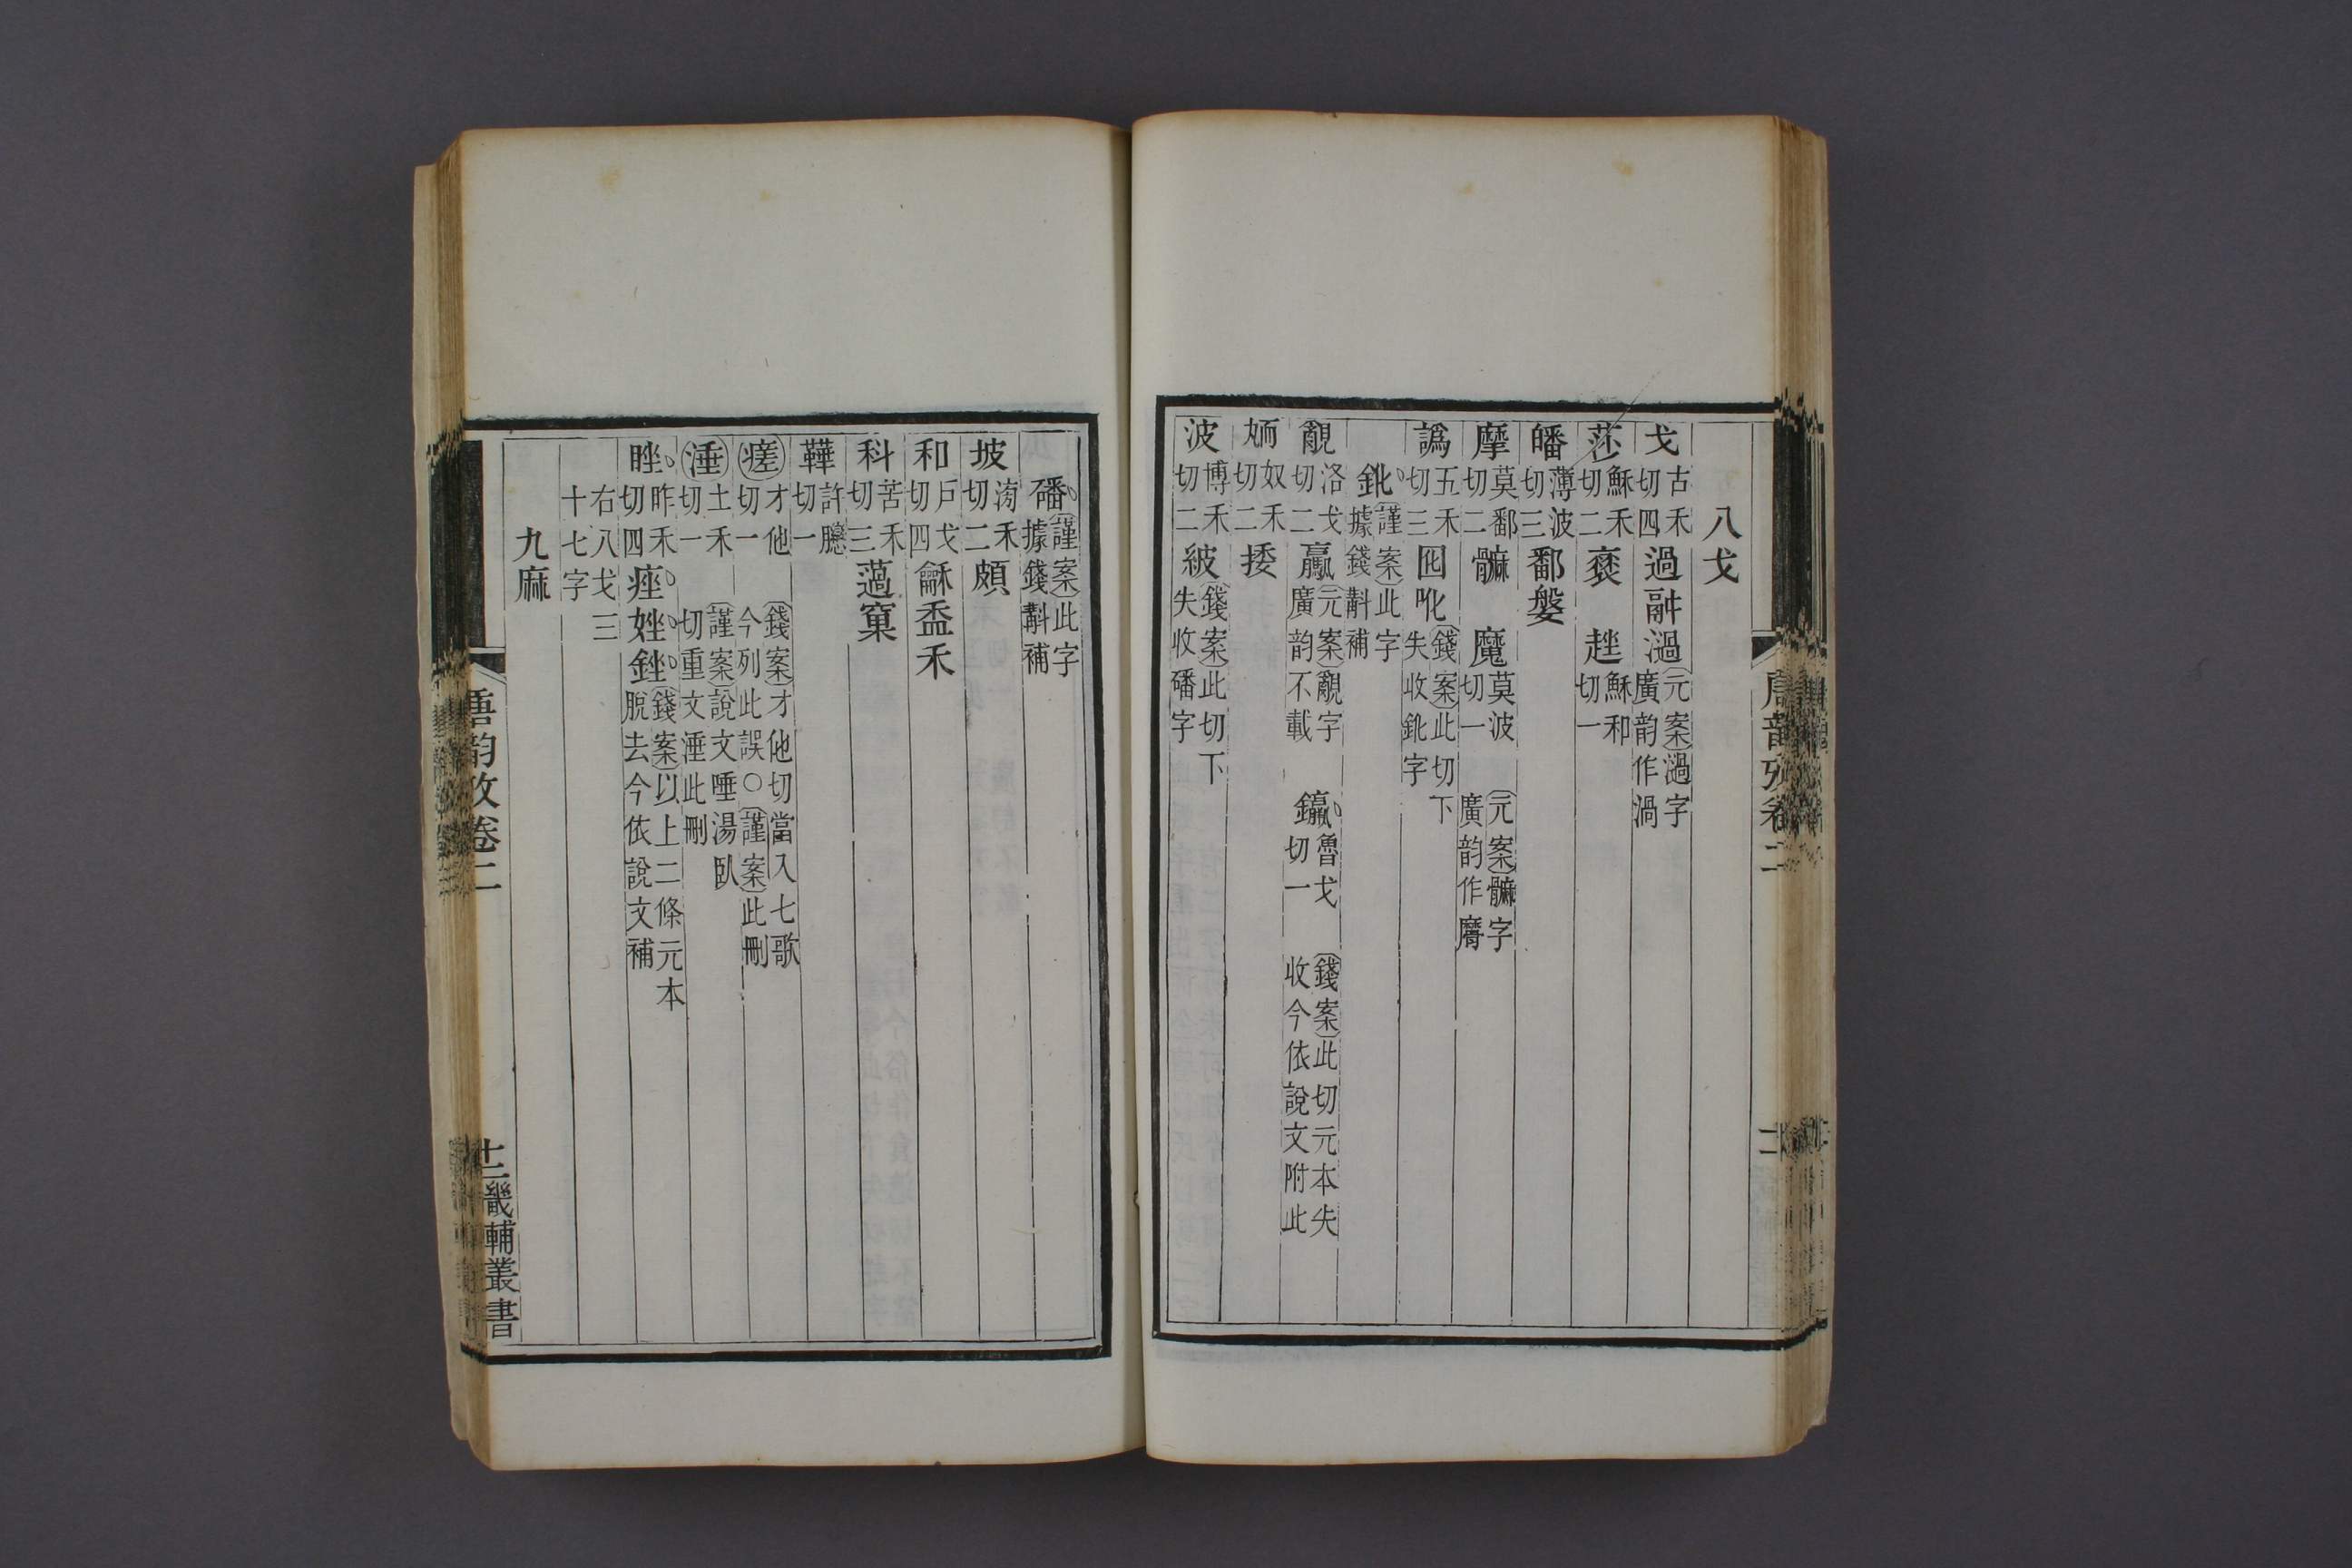 八戈
戈古禾切四過鬴濄元案濄字廣韵作渦
莎穌禾切二䘸趖穌和切一
皤薄波切三鄱媻
摩莫鄱切二髍魔莫波切一元案髍字廣韵作䯢
譌五禾切三囮吪錢案此切下失收鈋字
鈋謹案此字據錢斠補
覶洛戈切二驘元案覶字廣韵不載鑼魯戈切一錢案此切元本失收今依說文附此
㛂奴禾切二捼
波博禾切二紴錢案此切下失收磻字
磻謹案此字據錢斠補
坡滂禾切二頗
和戶戈切四龢盉禾
科苦禾切三薖窠
鞾許𦢊切一
瘥才他切一錢案才他切當入七歌今列此誤○謹案此刪
涶土禾切一謹案說文唾湯臥切重文涶此刪
睉昨禾切四痤矬銼錢案以上二條元本脫去今依說文補
右八戈三十七字
九麻
唐韵攷卷二
十二畿輔叢書